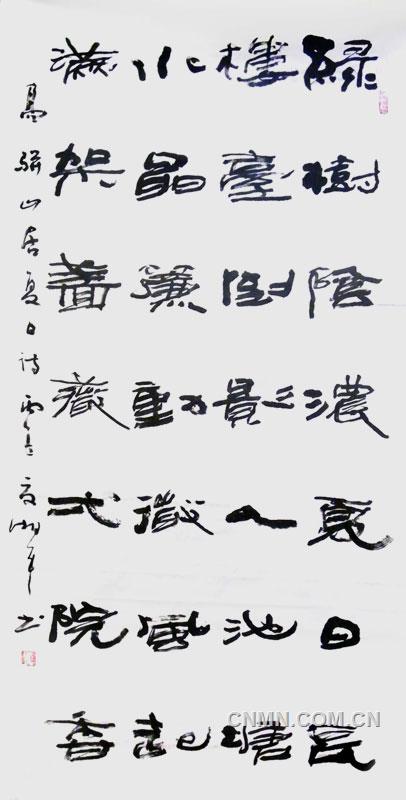 綠樹陰濃夏日長
樓臺倒影入池塘
水晶簾動微風起
滿架薔薇弌院香
高駢山居夏日詩
CNMN.COM.CN